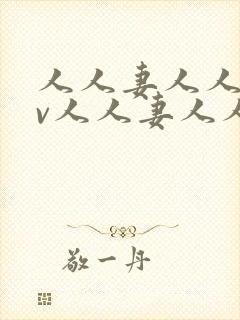 人人妻人人
v人人妻人人
敬一丹